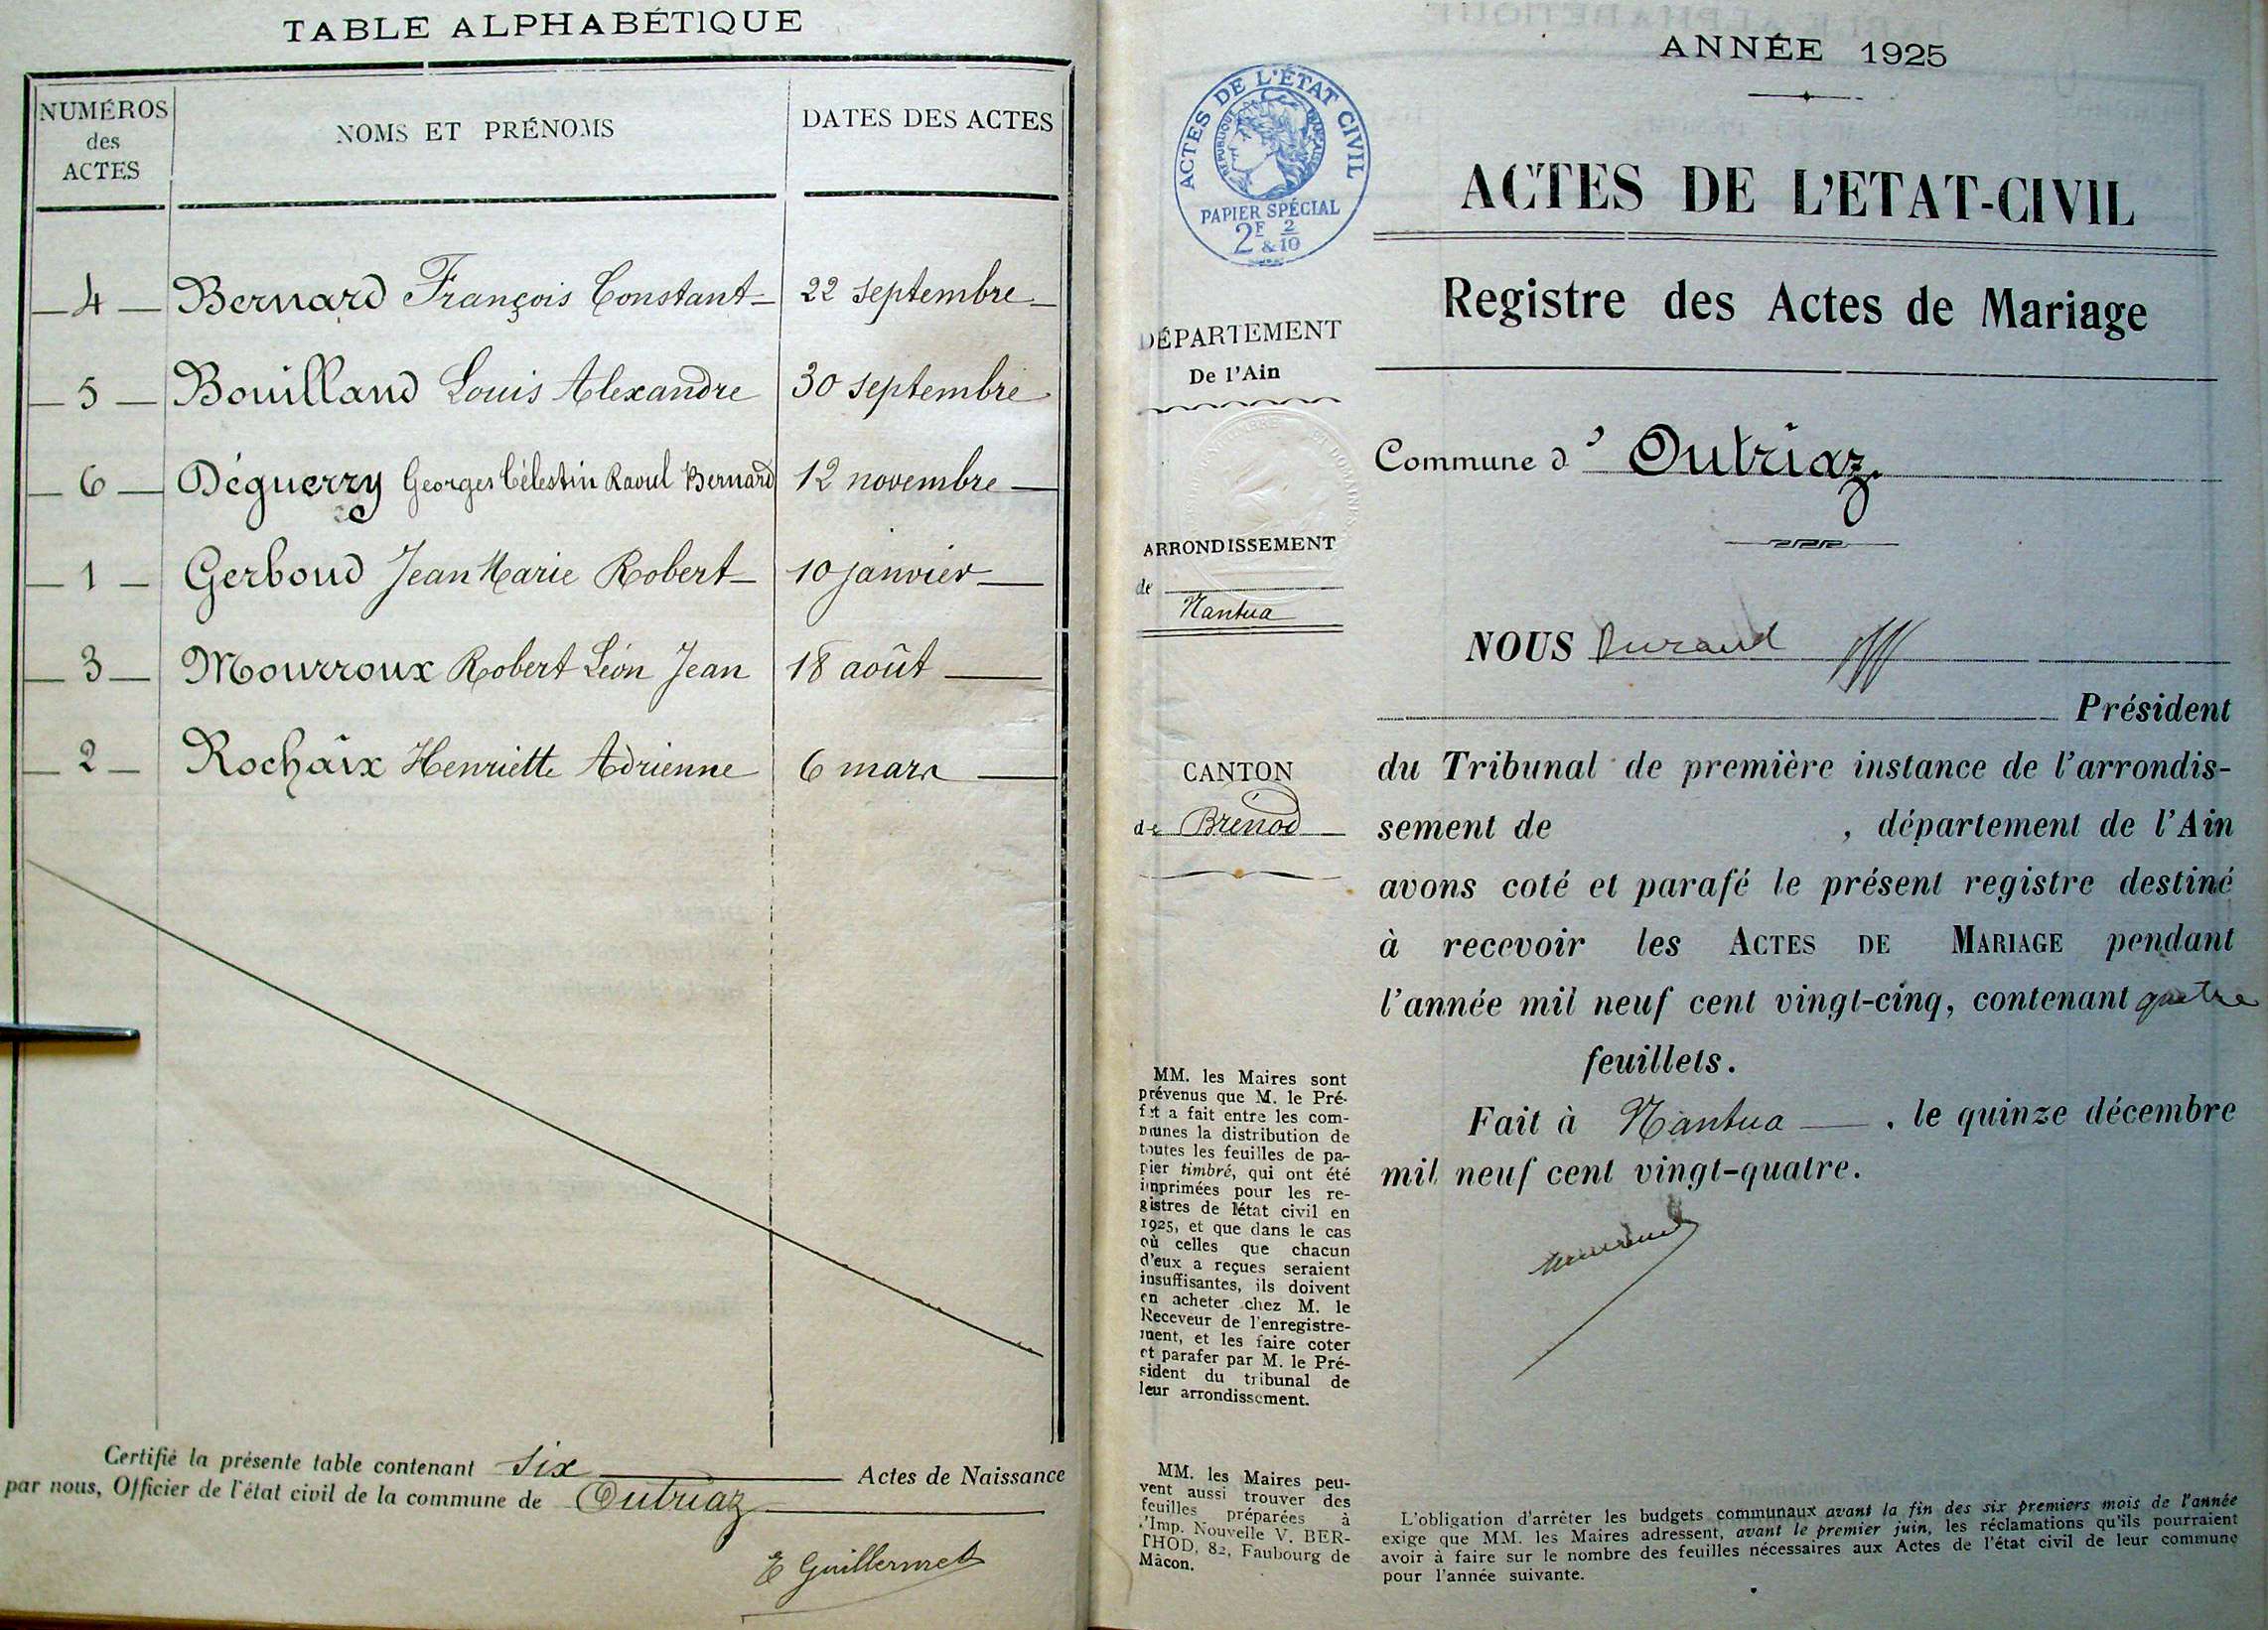 TABLE ALPHABÉTIQUE
NUMÉROS des ACTES
NOMS ET PRÉNOMS
DATES DES ACTES
4 Bernard François Constant 22 septembre
5 Bouilland Louis Alexandre 30 septembre
6 Déguerry Georges Célestin Raoul Bernard 12 novembre
1 Gerboud Jean Marie Robert 10 janvier
3 Mourroux Robert Léon Jean 18 août
2 Rochaix Henriette Adrienne 6 mars
Certifié la présente table contenant six Actes de Naissance
par nous, Officier de l'état civil de la commune de Outriaz
E Guillermet
ANNÉE 1925
ACTES DE L'ÉTAT CIVIL
RÉPUBLIQUE FRANÇAISE
PAPIER SPÉCIAL
2F & 2/10
DÉPARTEMENT
De l'Ain
ARRONDISSEMENT
de
Nantua
CANTON
de Brénod
MM. les Maires sont
prévenus que M. le Pré-
fet a fait entre les com-
munes la distribution de
toutes les feuilles de pa-
pier timbré, qui ont été
imprimées pour les re-
gistres de l'état civil en
1925, et que dans le cas
où celles que chacun
d'eux a reçues seraient
insuffisantes, ils doivent
en acheter chez M. le
Receveur de l'enregistre-
ment, et les faire coter
et parafer par M. le Pré-
sident du tribunal de
leur arrondissement.
MM. les Maires peu-
vent aussi trouver des
feuilles préparées à
l'Imp. Nouvelle V. BER-
THOD, 82, Faubourg de
Mâcon.
ACTES DE L'ETAT-CIVIL
Registre des Actes de Mariage
Commune d' Outriaz
NOUS Durand
Président
du Tribunal de première instance de l'arrondis-
sement de , département de l'Ain
avons coté et parafé le présent registre destiné
à recevoir les ACTES DE MARIAGE pendant
l'année mil neuf cent vingt-cinq, contenant quatre
feuillets.
Fait à Nantua , le quinze décembre
mil neuf cent vingt-quatre.
L'obligation d'arrêter les budgets communaux avant la fin des six premiers mois de l'année
exige que MM. les Maires adressent, avant le premier juin, les réclamations qu'ils pourraient
avoir à faire sur le nombre des feuilles nécessaires aux Actes de l'état civil de leur commune
pour l'année suivante.